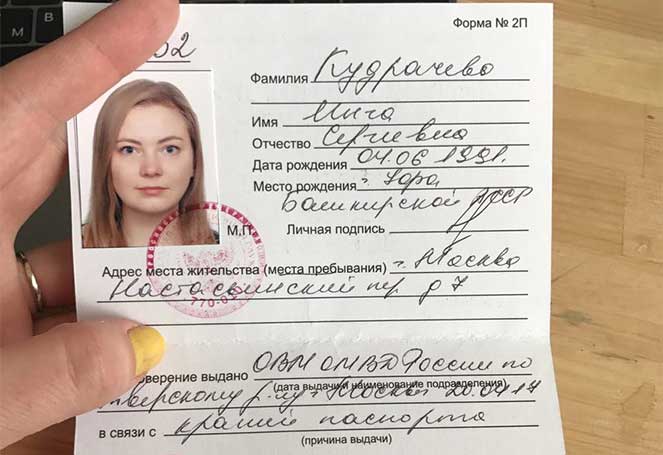 Форма № 2П
Фамилия Кудрачева
Имя Инга
Отчество Сергеевна
Дата рождения 04.06 1991г.
Место рождения г.
Башкирской АССР
М.П.
Личная подпись
Адрес места жительства (места пребывания) г. Москва
Настасьинский пер. д 7
770-
оверение выдано ОВМ ОМВД России по
(дата выдачи и наименование подразделения)
верскому р-ну г. Москвы
в связи с кражей паспорта
(причина выдачи)